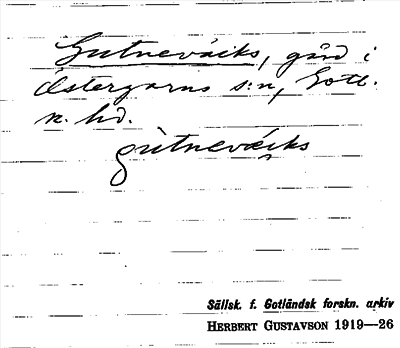 Gutneväiks, gård i
Östergarns s:n, Gotl.
n. hd.
gùtneväiks
Sällsk. f. Gotländsk forskn. arkiv
HERBERT GUSTAVSON 1919—26